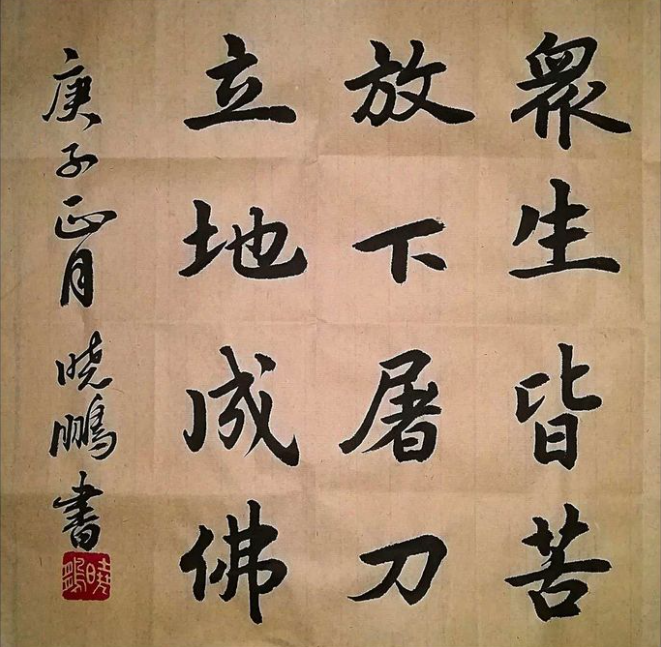 衆生皆苦
放下屠刀
立地成佛
庚子正月曉鵬書
曉鵬